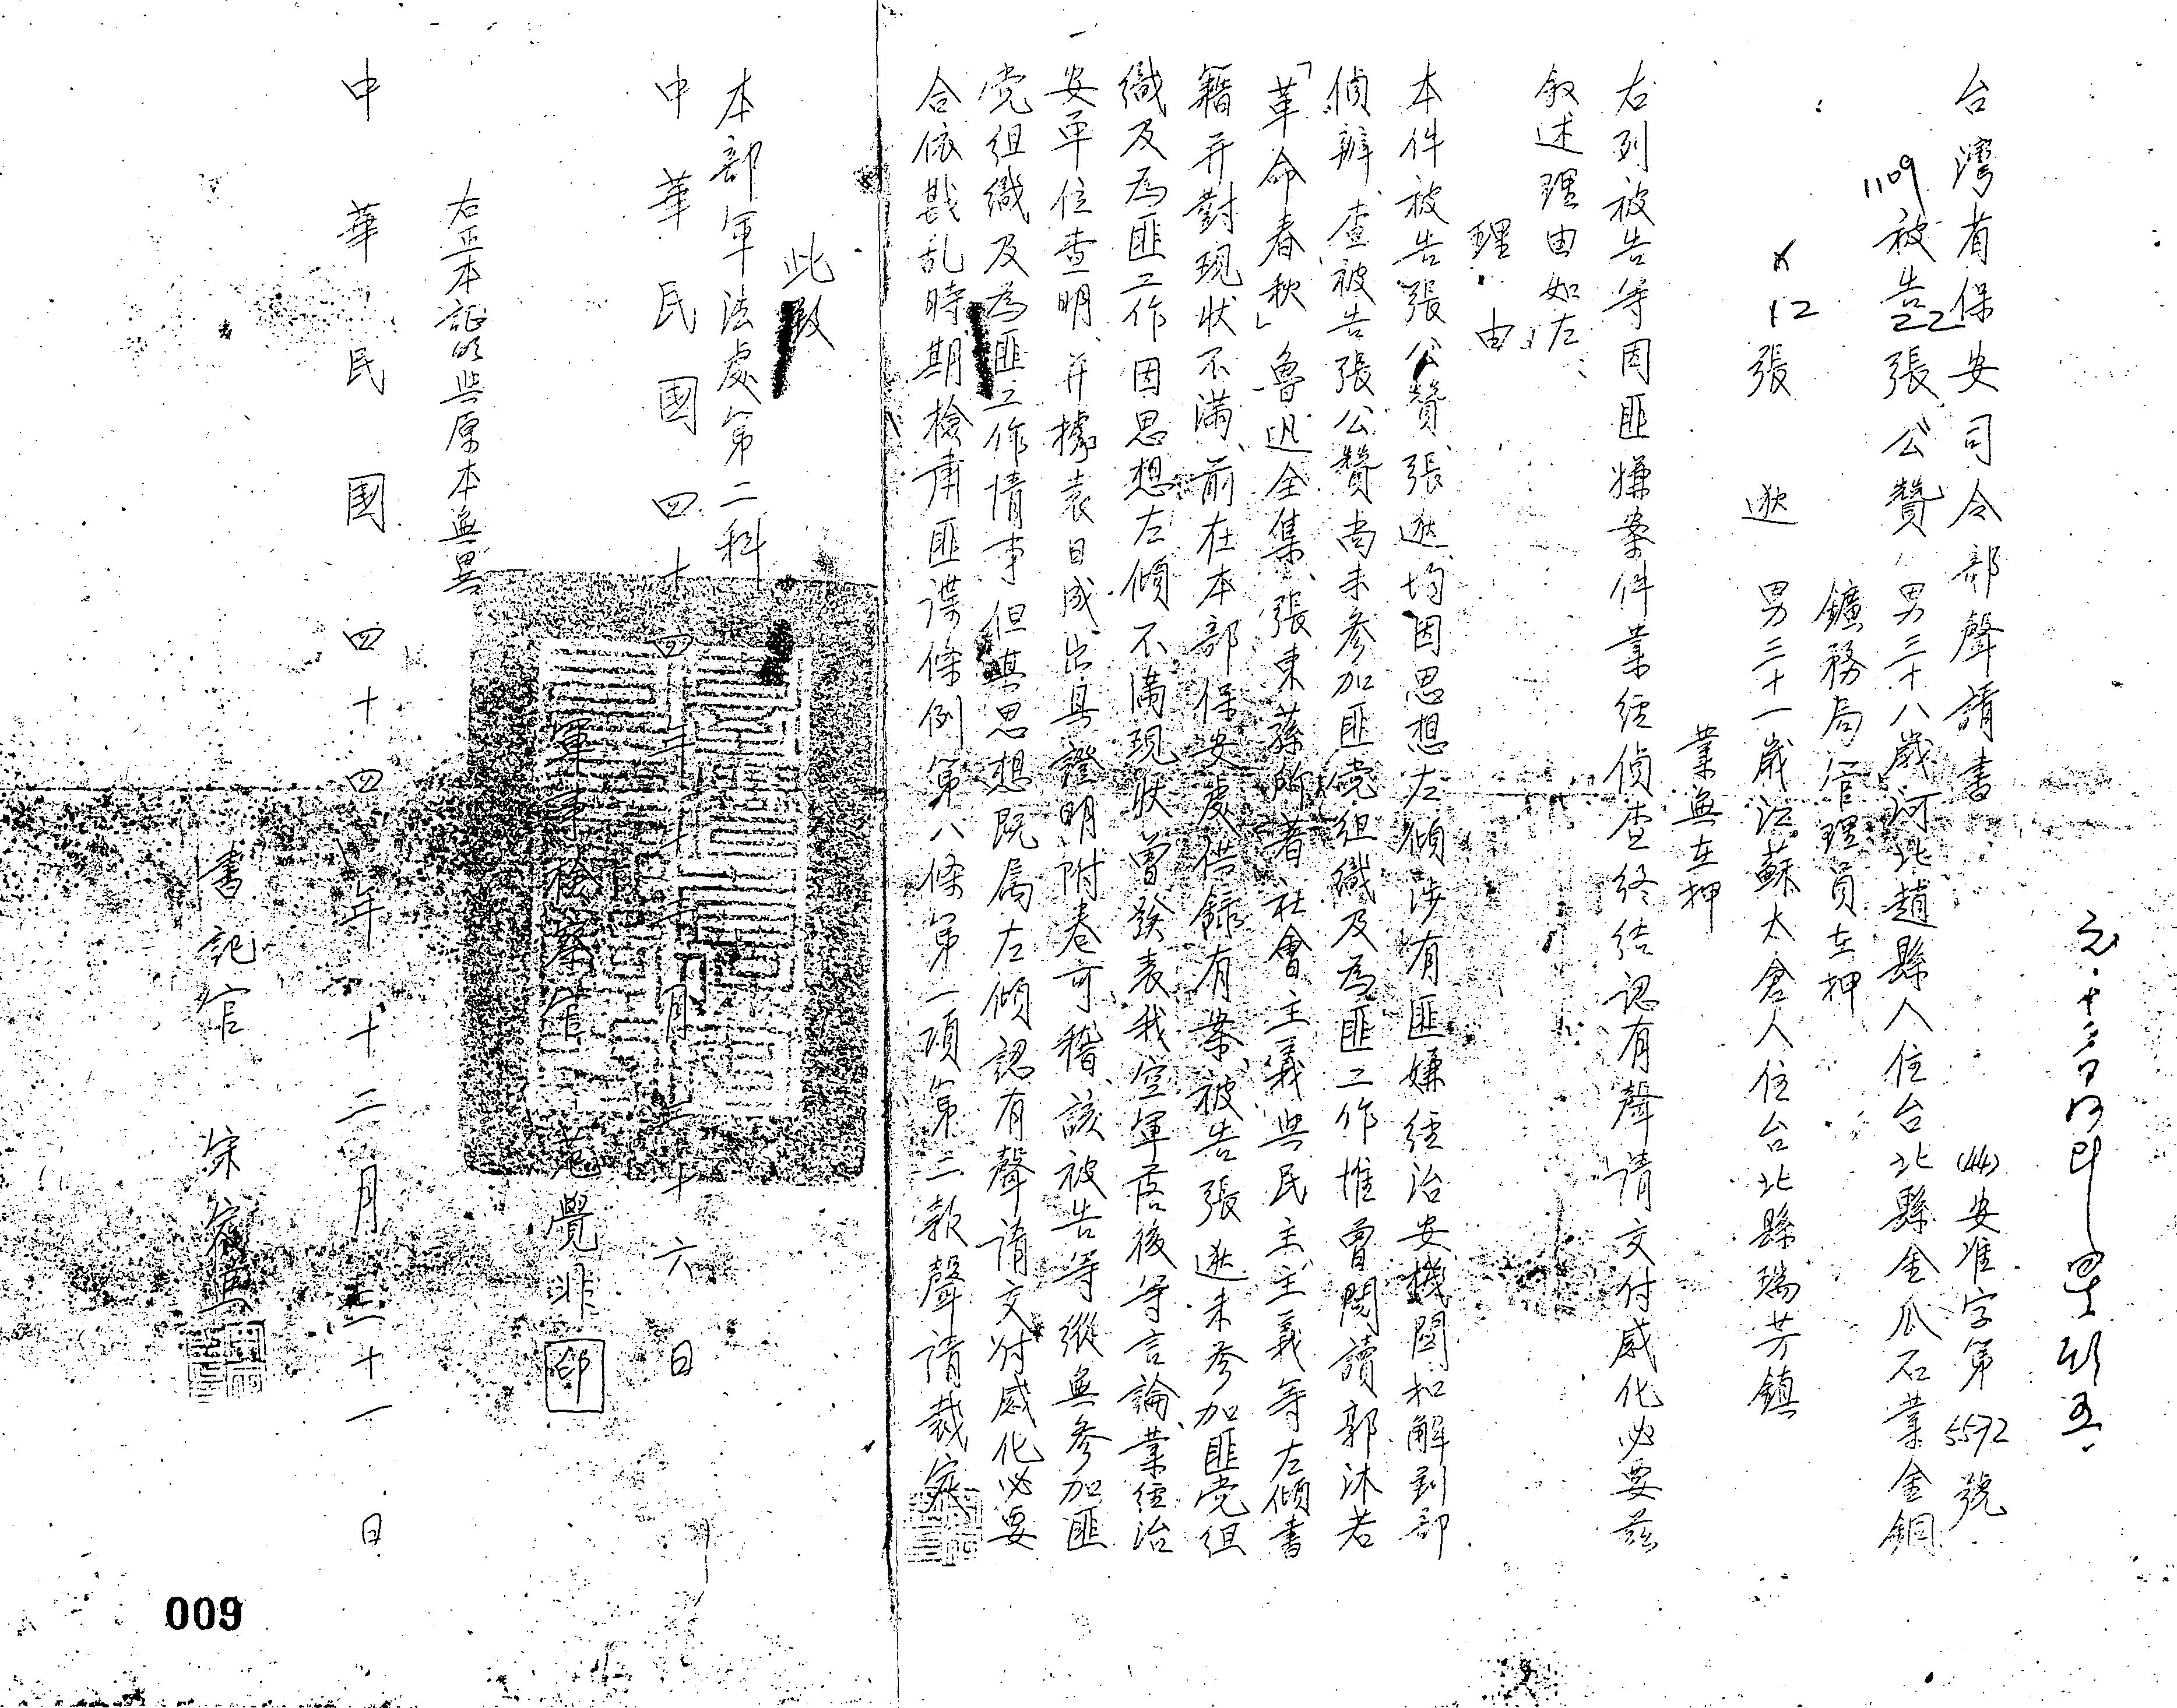 台灣省保安司令部聲請書
(44)安准字第5592號
1109
22
被告張公贊 男三十八歲河北趙縣人住台北縣金瓜石業金銅
鑛務局管理員在押
12
張逖 男三十一歲江蘇太倉人住台北縣瑞芳鎮
業無在押
右列被告等因匪嫌案件業經偵查終結認有聲请交付感化必要茲
叙述理由如左:
理由
本件被告張公贊、張逖、均因思想左傾涉有匪嫌經治安機關扣解到部
偵辦、查被告張公贊尚未參加匪党組織及為匪工作惟曾閱讀郭沫若
「革命春秋」魯迅全集、張東蓀所著社會主義與民主主義等左傾書
籍并對現状不滿、前在本部保安處供錄有案、被告張逖未參加匪党組
織及為匪工作因思想左傾不滿現狀曾發表我空軍落後等言論、業經治
安單位查明、并據袁日成出具證明附卷可稽、該被告等縱無參加匪
党組織及為匪工作情事但其思想既属左傾認有聲請交付感化必要
合依戡乱時期檢肅匪諜條例第八條第一項第二款聲請裁定
此致
本部軍法處第二科
中華民國四十四年十二月二十六日
軍事檢察官 范覺非 印
右正本証明與原本無異
中華民國四十四年十二月三十一日
書記官 宋
009